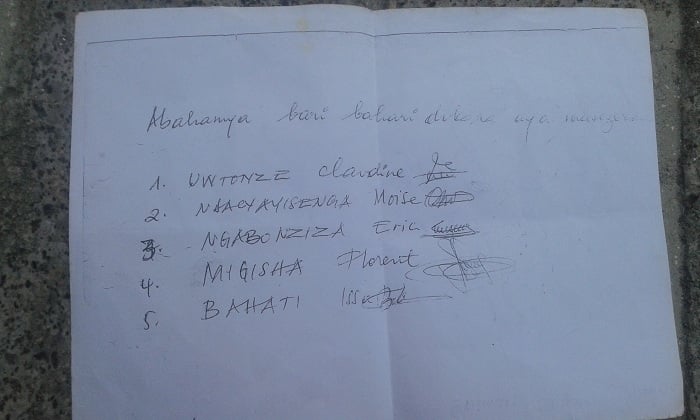 Abahamya bari bahari dukora aya masezerano
1. UWTONZE Claudine
2. NDAGYAYISENGA Moise
3. NGABONZIZA Eric
4. MIGISHA Florent
5. BAHATI Issa